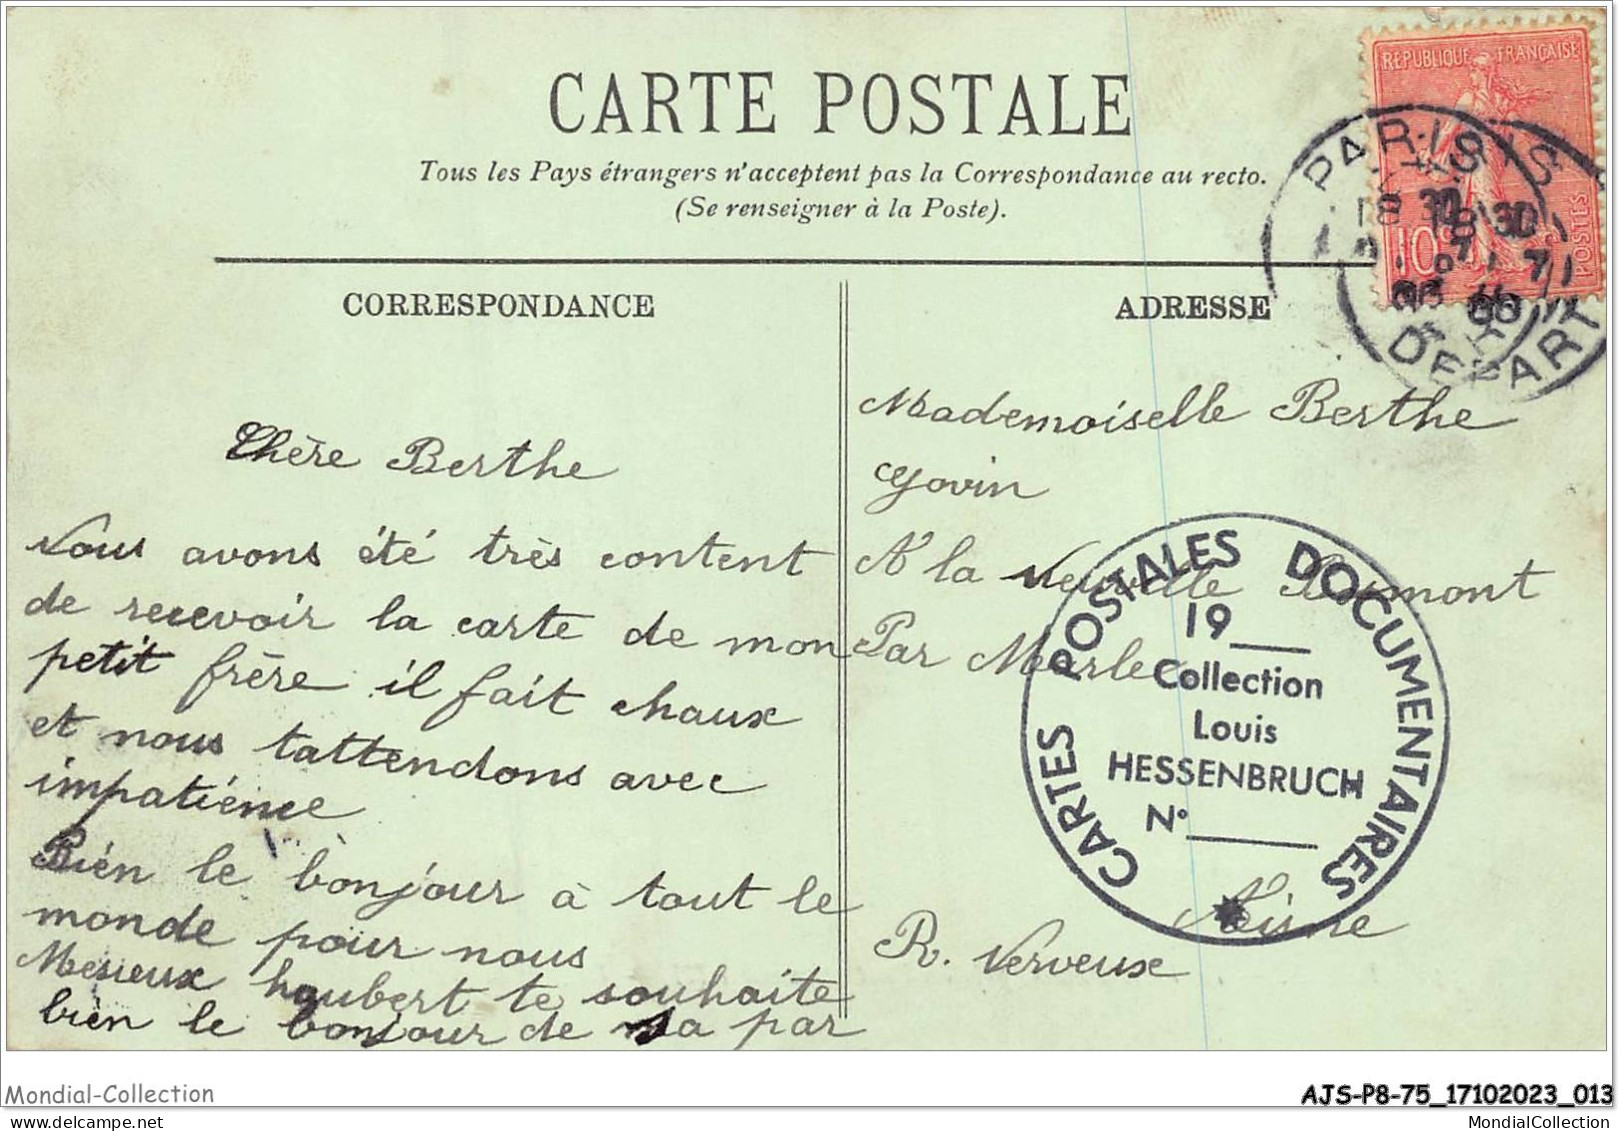 CARTE POSTALE
Tous les Pays étrangers n'acceptent pas la Correspondance au recto.
(Se renseigner à la Poste).
REPUBLIQUE FRANÇAISE
10c
POSTES
PARIS
18 30
DEPART
CORRESPONDANCE
Chère Berthe
Nous avons été très content
de recevoir la carte de mon
petit frère il fait chaux
et nous tattendons avec
impatiénce
Bién le bonjour à tout le
monde pour nous
Mesieux haubert te souhaite
bien le bonjour de sa par
ADRESSE
Mademoiselle Berthe
Govin
A la Neuville Bosmont
Par Marle
Aisne
R. Verveux
CARTES POSTALES DOCUMENTAIRES
19
Collection
Louis
HESSENBRUCH
N°
Mondial-Collection
AJS-P8-75_17102023_013
MondialCollection